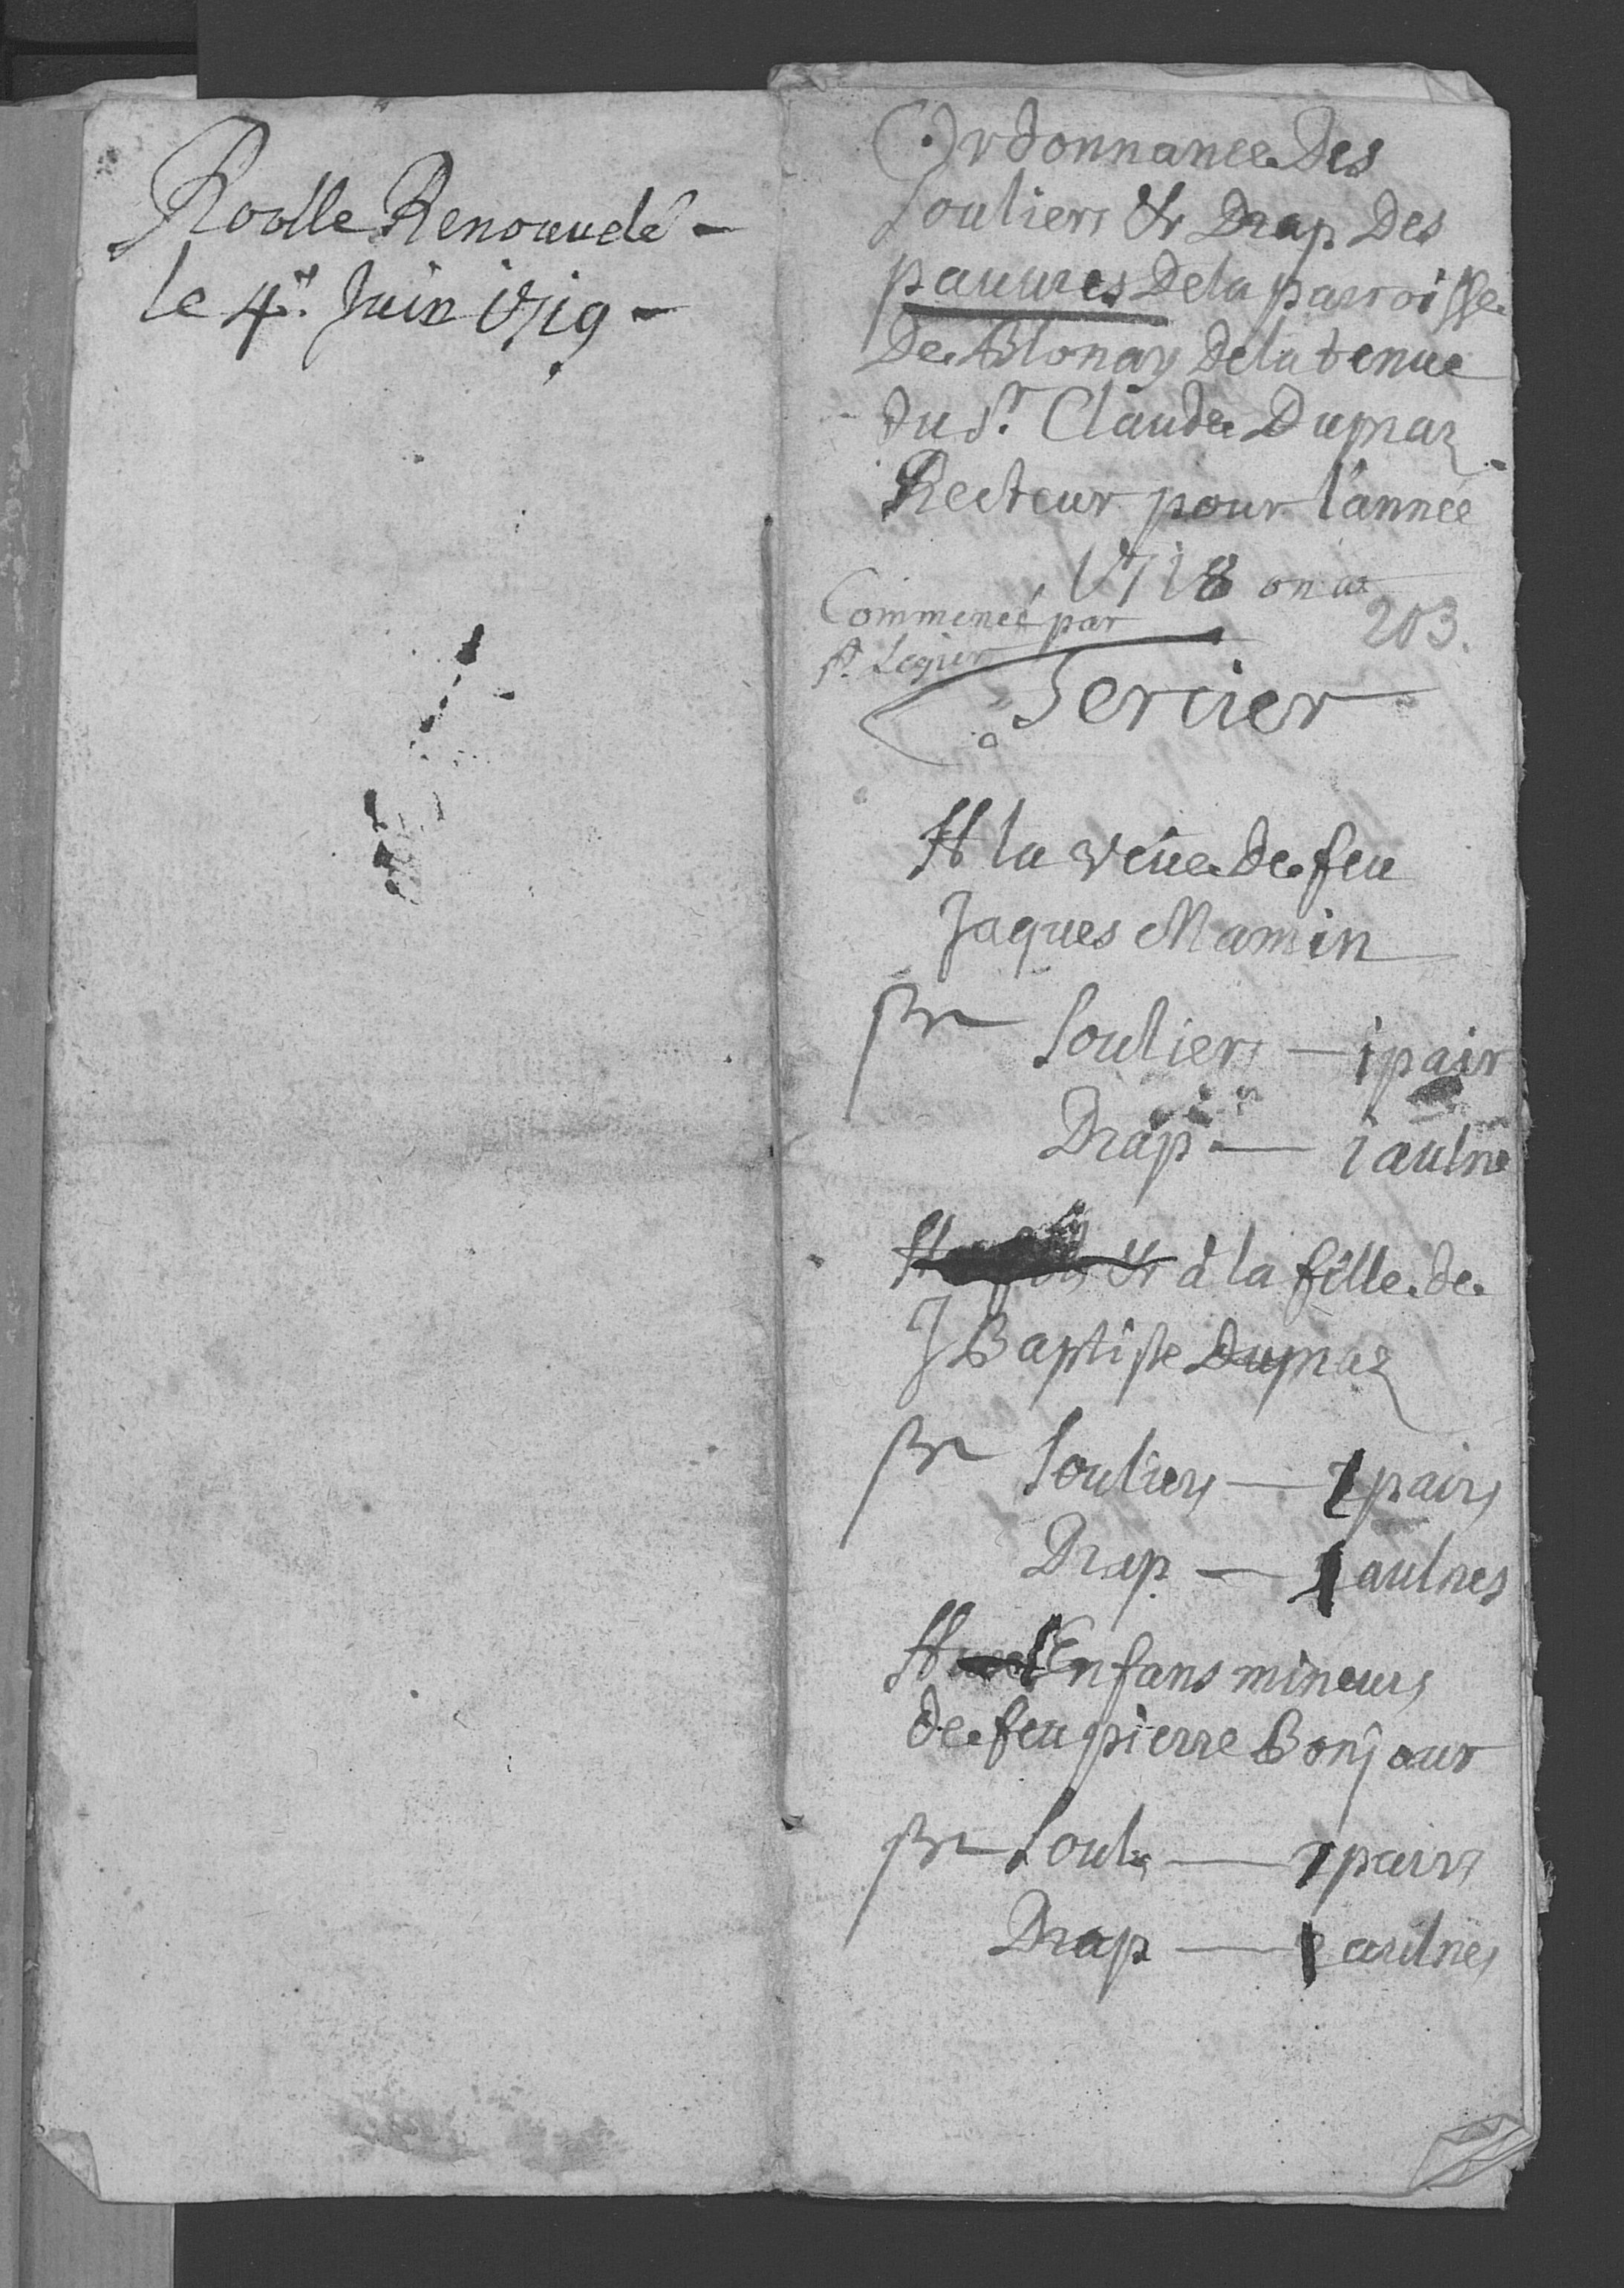 Roolle Renouvelé -
le 4e. Juin 1719 -
Ordonnance Des
souliers & Drap Des
pauures Dela parroisse
De Blonay Dela tenue
du Sr. Claude Dupraz
Recteur pour l'année
1718 on a
Commencé par
St. Legier
203.
Tercier
A la veüe de feu
Jaques Mamin
Pr Souliers — 1 pair
Drap — 1 aulne
& à la fille de
J Baptiste Dupraz
Pr Souliers — 1 pairs
Drap — 1 aulnes
A Enfans mineurs
de feu pierre Bonjour
Pr Soulrs — 1 pairs
Drap — 1 aulnes